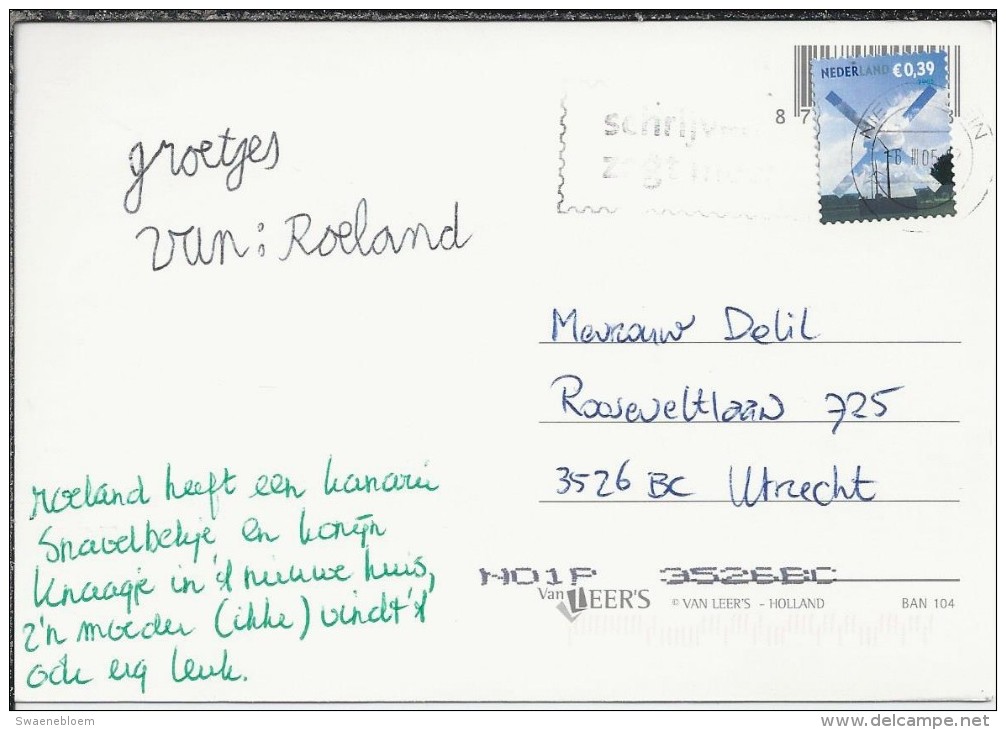 NEDERLAND €0,39
schrijv
8 7
groetjes
van: Roeland
Mevrouw Delil
Rooseveltlaan 725
3526 BC Utrecht
roeland heeft een kanarie
Snavelbekje en konijn
Knaagje in 't nieuwe huis,
z'n moeder (ikke) vindt 't
ook erg leuk.
NO1P 3526BC
Van LEER'S © VAN LEER'S - HOLLAND BAN 104
Swaenebloem www.delcampe.net